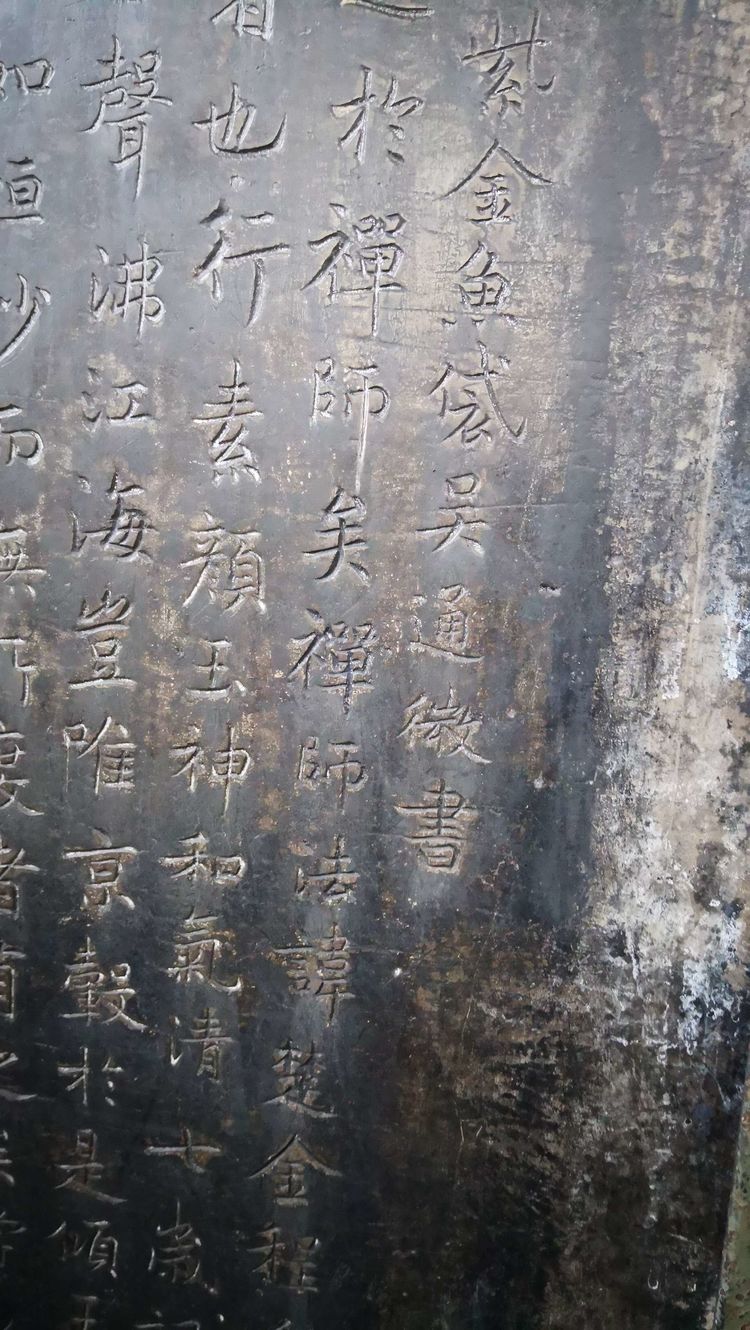 紫金魚袋吴通微書
於禪師矣禪師法諱楚金程
也行素顏玉神和氣清七歲
聲沸江海豈唯京轂於是傾
如恒沙而無